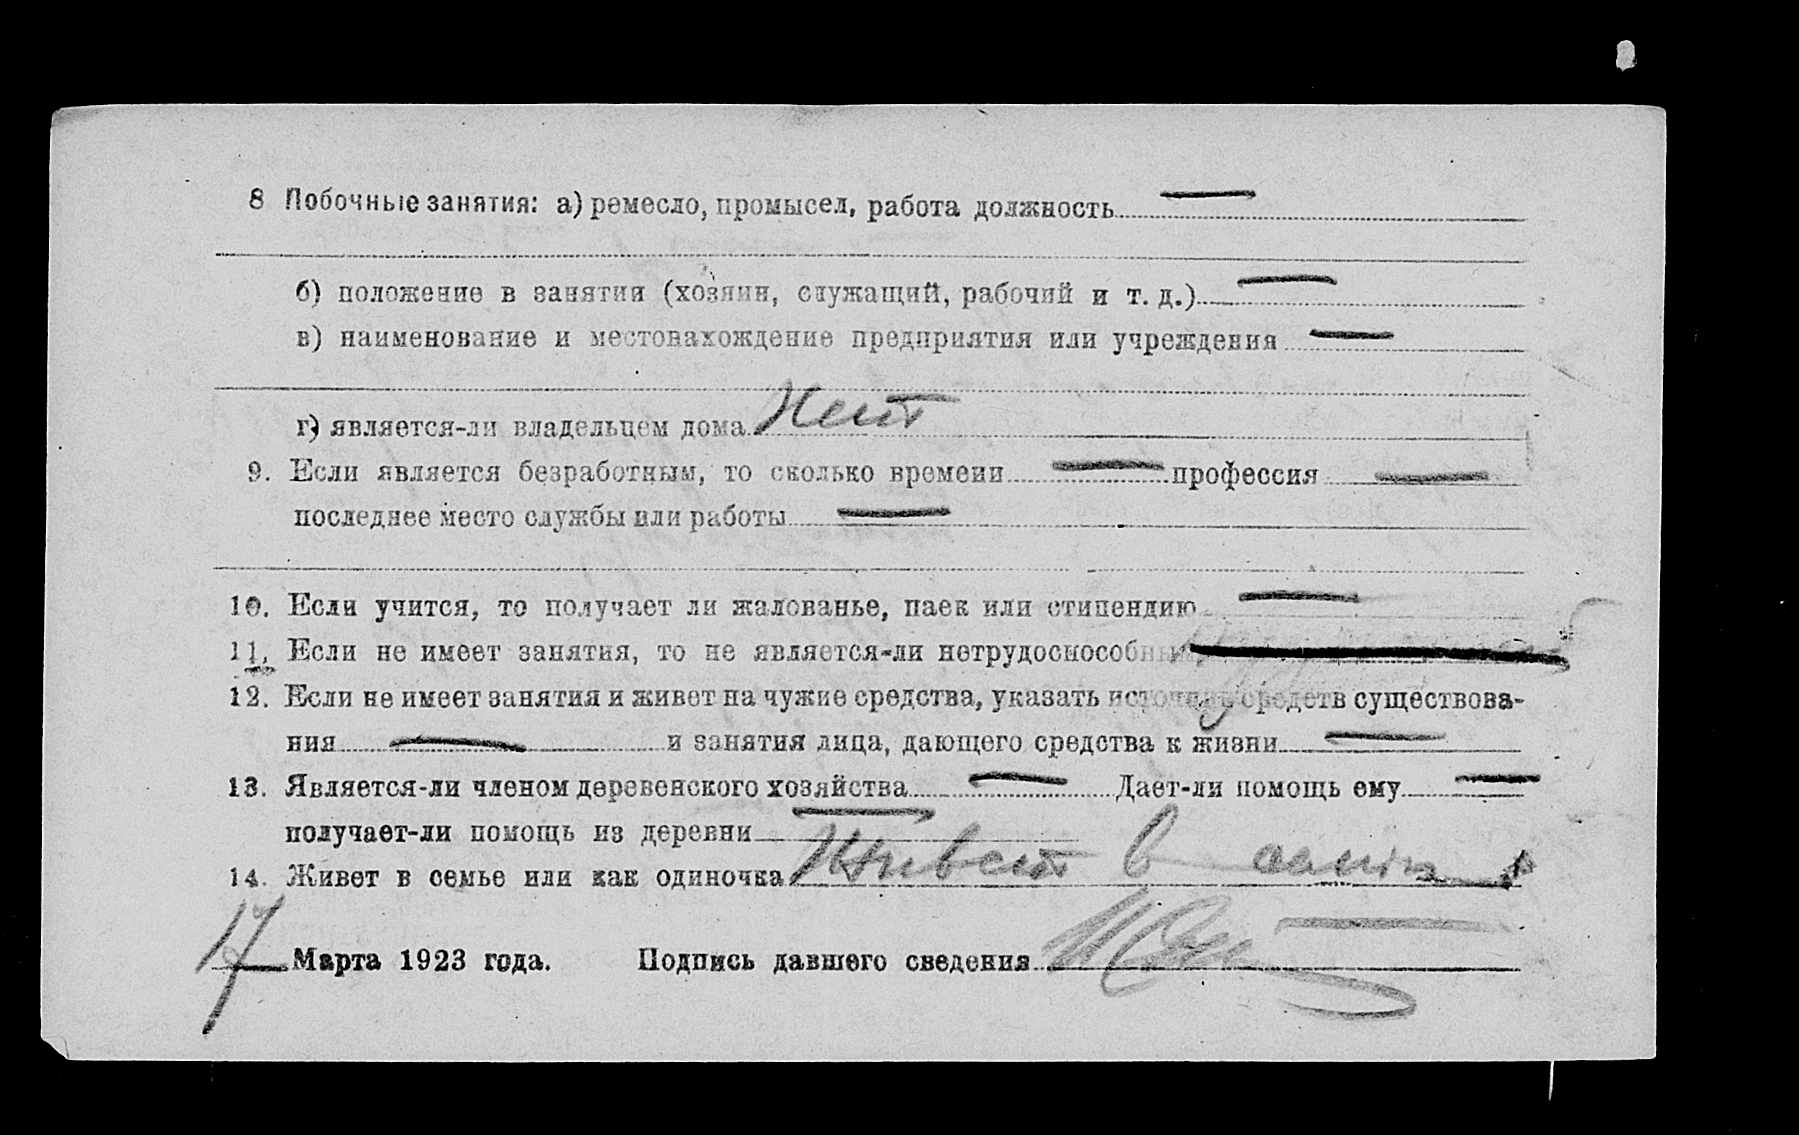 8 Побочные занятия: а) ремесло, промысел, работа должность —
б) положение в занятии (хозяин, служащий, рабочий и т. д.) —
в) наименование и местонахождение предприятия или учреждения —
г) является-ли владельцем дома Нет
9. Если является безработным, то сколько времени — профессия —
последнее место службы или работы —
10. Если учится, то получает ли жалованье, паек или стипендию —
11. Если не имеет занятия, то не является-ли нетрудоспособным
12. Если не имеет занятия и живет на чужие средства, указать источник средств существова-
ния — и занятия лица, дающего средства к жизни —
13. Является-ли членом деревенского хозяйства — Дает-ли помощь ему —
получает-ли помощь из деревни —
14. Живет в семье или как одиночка Живет в семье
17 Марта 1923 года. Подпись давшего сведения